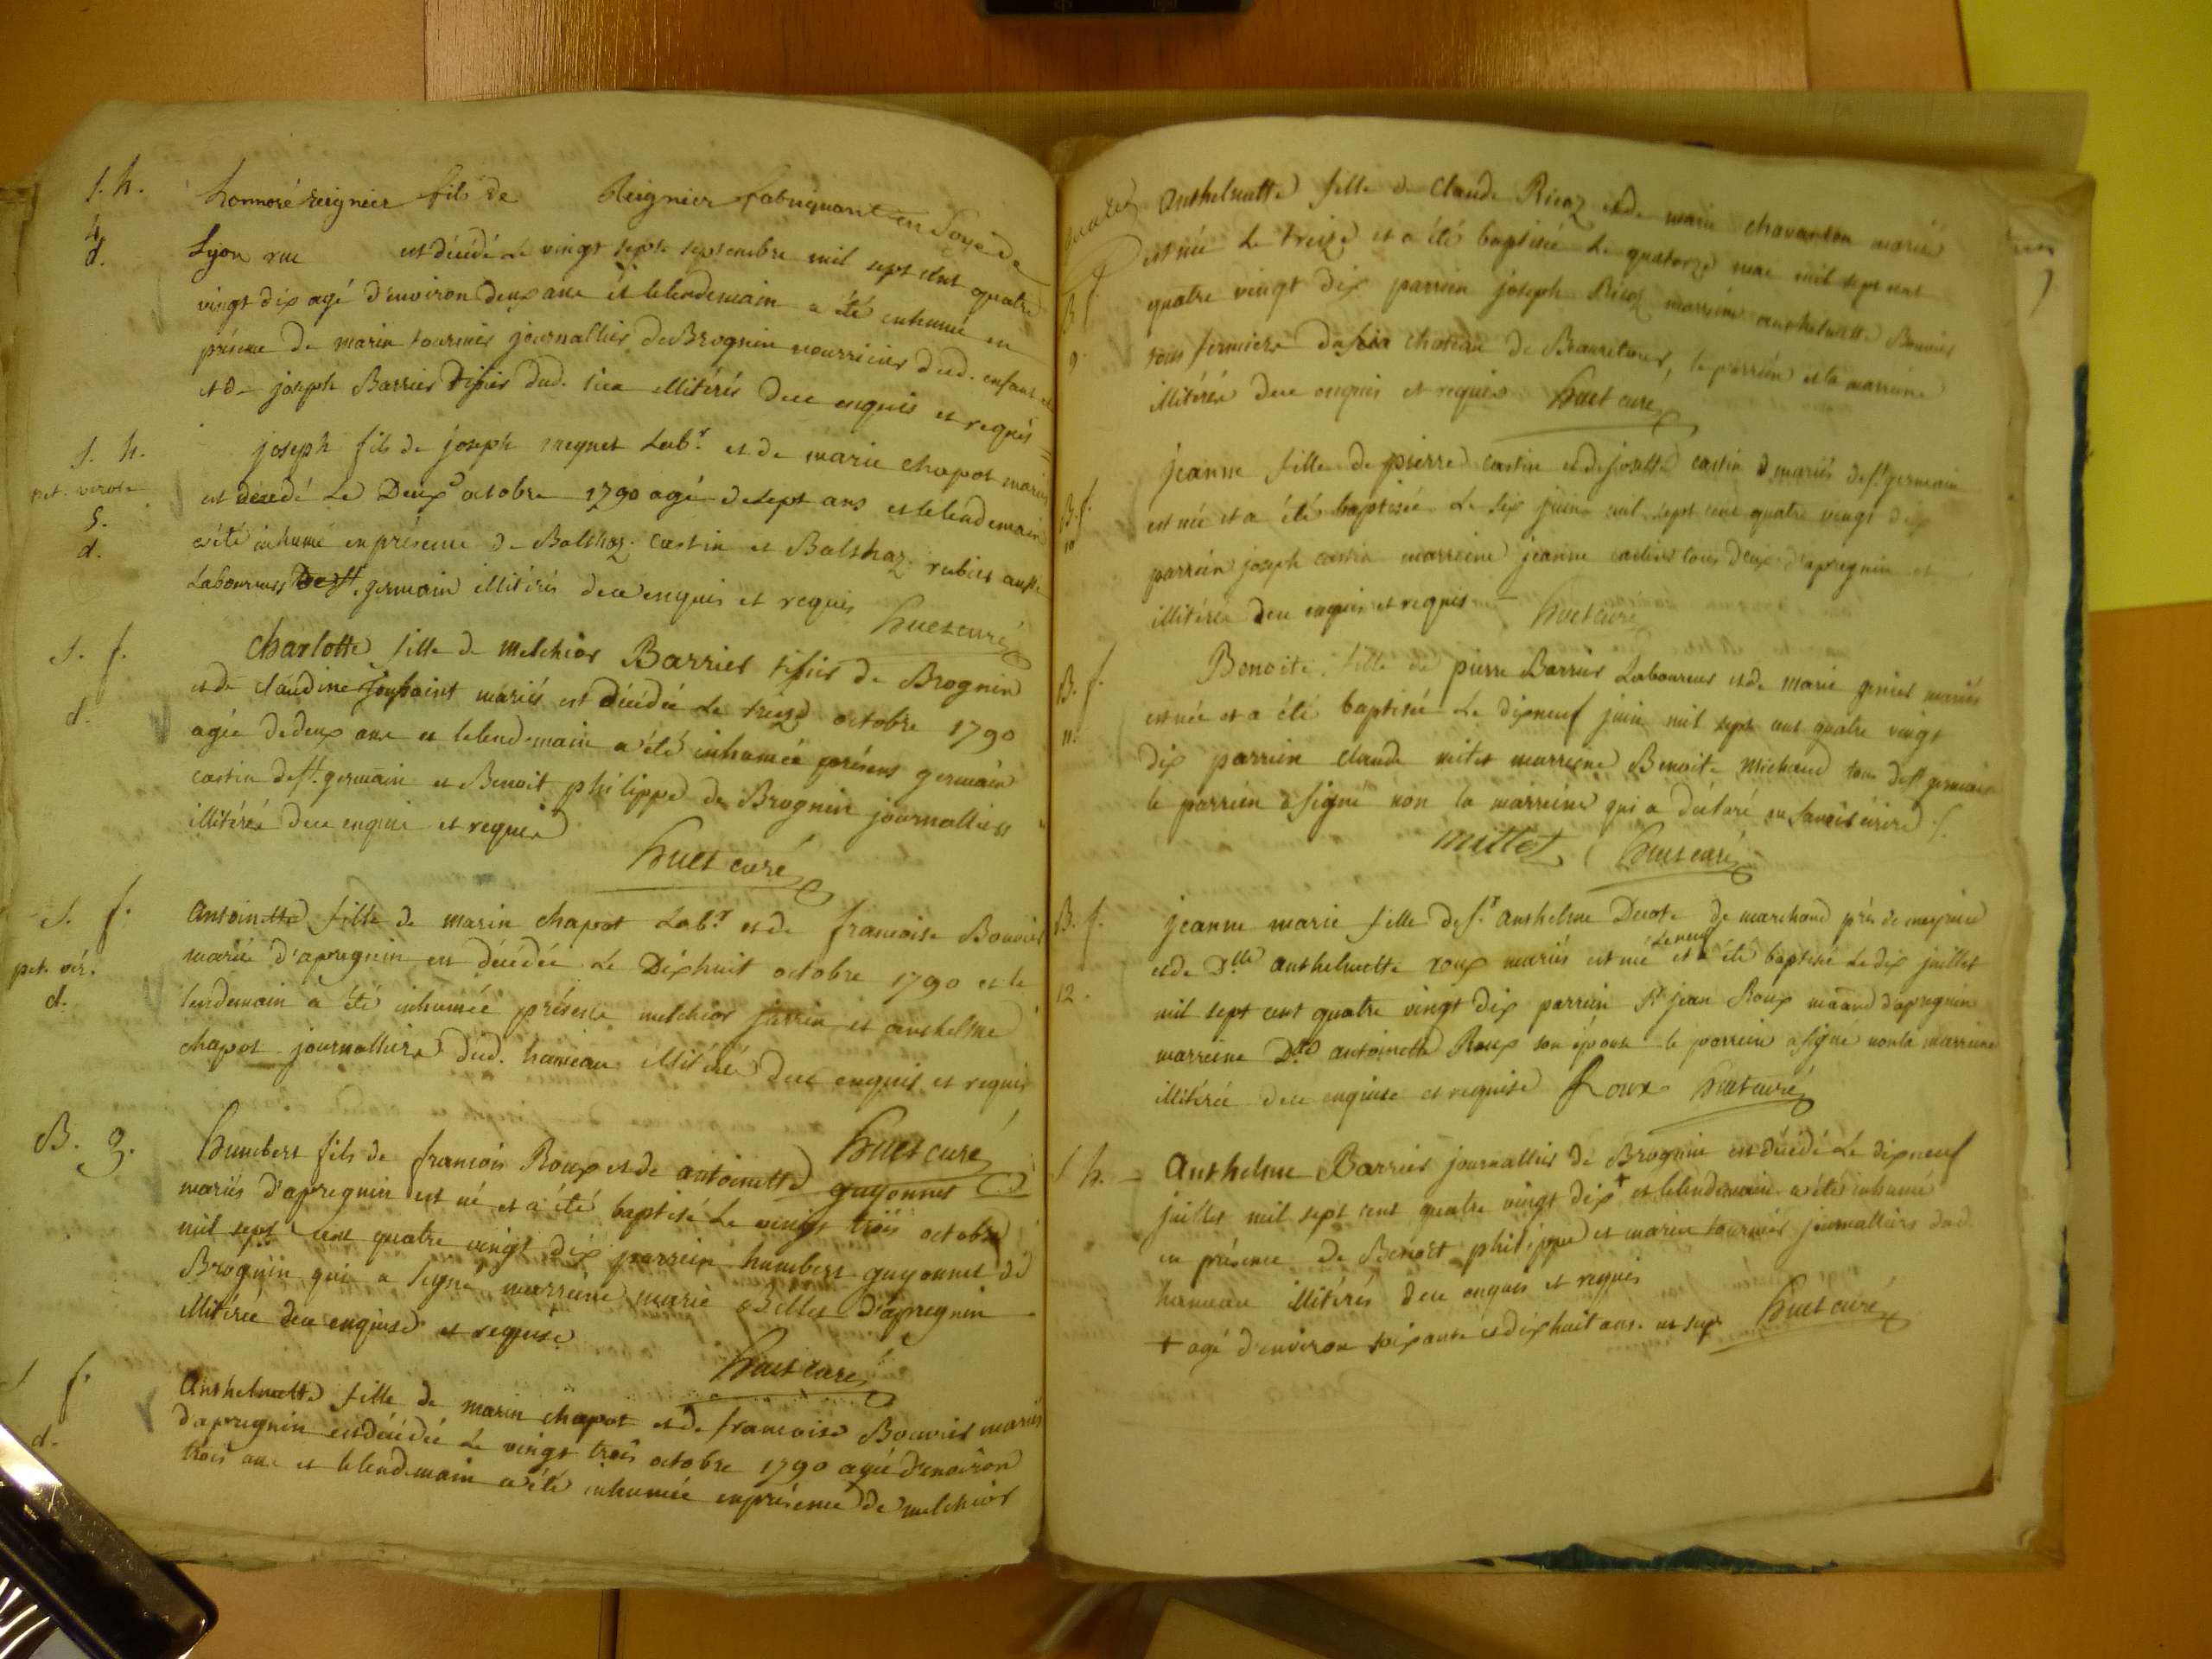 S. h.
4
d.
honnoré reignier fils de Reignier fabriquant en Soye de
Lyon rue est décédé le vingt sept septembre mil sept cent quatre
vingt dix agé d'environ deux ans et le lendemain a été inhumé en
présence de marin tournier journallier de Brognin nourricier dud. enfant
et de joseph Barrier tissier dud. lieu illitérés de ce enquis et requis
S. h.
pet. verole
5.
d.
joseph fils de joseph meynet Lab.r et de marie chapot mariés
est décédé le Deux octobre 1790 agé de sept ans et le lendemain
a été inhumé en présence de Balthaz. castin et Balthaz. rubier
Laboureurs de St. germain illitérés de ce enquis et requis
huet curé
S. f.
d.
Charlotte fille de Melchior Barrier tissier de Brognin
et de claudine Joussaint mariés est décédée le treize octobre 1790
agée de deux ans et le lendemain a été inhumée présens germain
castin de St. germain et Benoit philippe de Brognin journalliers
illitérés de ce enquis et requis
huet curé
S. f.
pet. vér.
d.
Antoinette fille de marin chapot Lab.r et de francoise Bouvier
mariés d'apregnin est décédée Le Dixhuit octobre 1790 et le
lendemain a été inhumée présens melchior jurrin et anthelme
chapot journalliers dud. hameau illitérés de ce enquis et requis
huet curé
B. g.
humbert fils de francois Roux et de antoinette guyonnet
mariés d'apregnin est né et a été baptisé Le vingt trois octobre
mil sept cent quatre vingt dix parrein humbert guyonnet de
Brognin qui a signé marreine marie Billet d'apregnin
illitérée de ce enquise et requise
huet curé
f.
d.
Anthelmette fille de marin chapot et de francoise Bouvier mariés
d'apregnin est décédée Le vingt trois octobre 1790 agée d'environ
trois ans et le lendemain a été inhumée en présence de melchior
B f.
9.
Anthelmette fille de Claude Ricoz et de marie chavanton mariés
est née Le treize et a été baptisée Le quatorze mai mil sept cent
quatre vingt dix parrein joseph Ricoz marreine anthelmette Bouvier
tous fermiers du chateau de Beauretour, le parrein et la marreine
illitérés de ce enquis et requis huet curé
B. f.
10
jeanne fille de pierre castin et de josette castin mariés de St. germain
est née et a été baptisée Le six juin mil sept cent quatre vingt dix
parrein joseph castin marreine jeanne castin tous deux d'apregnin et
illitérés de ce enquis et requis huet curé
B. f.
11.
Benoite fille de pierre Barrier Laboureur et de marie genier mariés
est née et a été baptisée Le dixneuf juin mil sept cent quatre vingt
dix parrein claude mitet marreine Benoite Michaud tous de St. germain
le parrein a signé non la marreine qui a déclaré ne savoir écrire
millet huet curé
B. f.
12.
jeanne marie fille de S.r anthelme Ducote de marchand près de
et de Dlle anthelmette roux mariés est née le neuf et a été baptisée Le dix juillet
mil sept cent quatre vingt dix parrein Sr jean Roux d'apregnin
marreine Dlle antoinette Roux son épouse le parrein a signé non la marreine
illitérée de ce enquise et requise Roux huet curé
S h.
Anthelme Barrier journallier de Brognin est décédé Le dixneuf
juillet mil sept cent quatre vingt dix + et le lendemain a été inhumé
en présence de Benoit philippe et marin tournier journalliers dud.
hameau illitérés de ce enquis et requis
+ agé d'environ soixante et dixhuit ans. huet curé